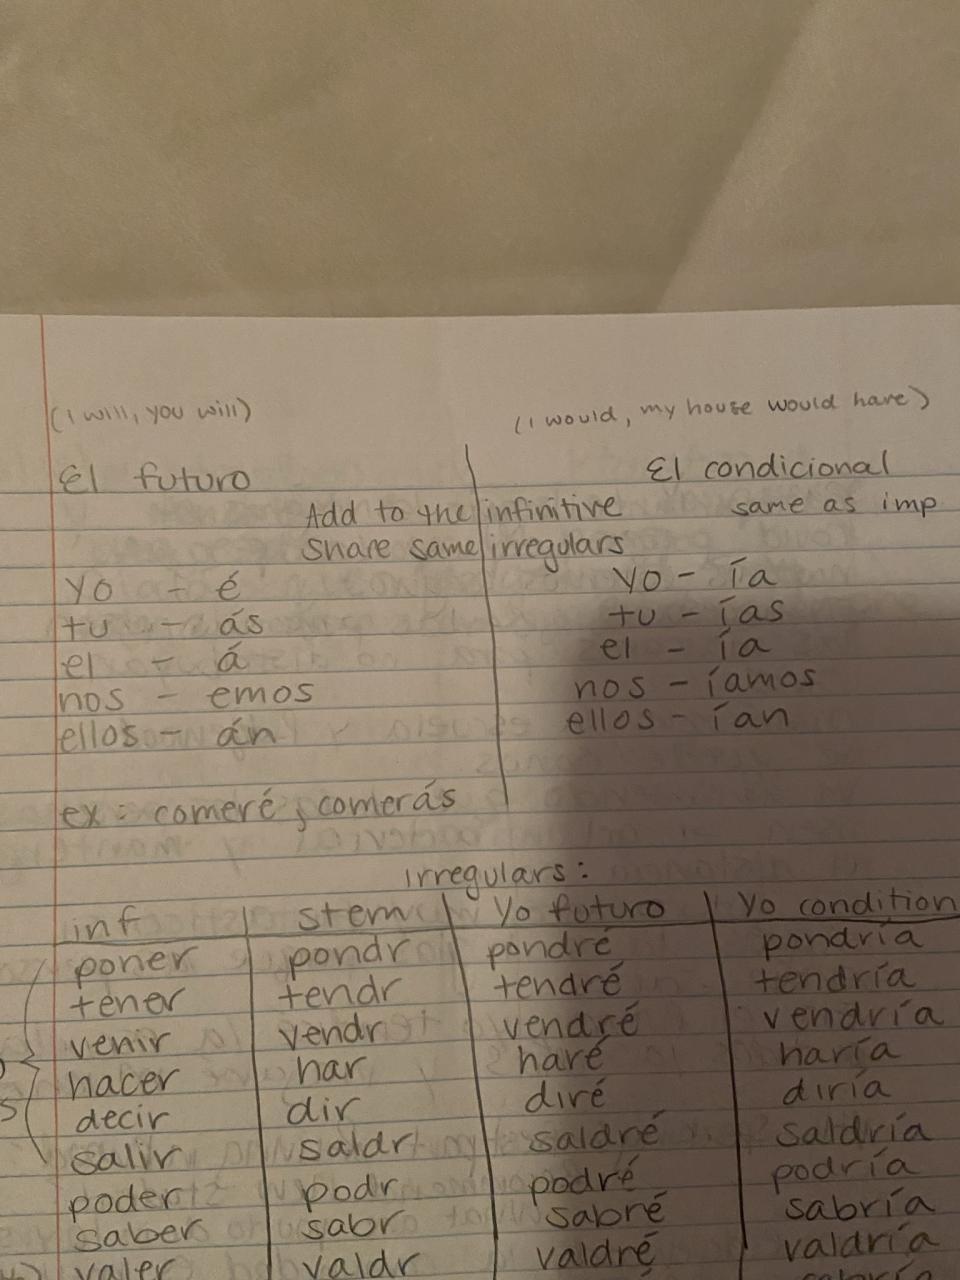 (I will, you will) (I would, my house would have)
El futuro El condicional
Add to the infinitive same as imp
share same irregulars
yo - é yo - ía
tu - ás tu - ías
el - á el - ía
nos - emos nos - íamos
ellos - án ellos - ían
ex: comeré, comerás
irregulars:
inf stem yo futuro yo condition
poner pondr pondré pondría
tener tendr tendré tendría
venir vendr vendré vendría
hacer har haré haría
decir dir diré diría
salir saldr saldré saldría
poder podr podré podría
saber sabr sabré sabría
valer valdr valdré valdría